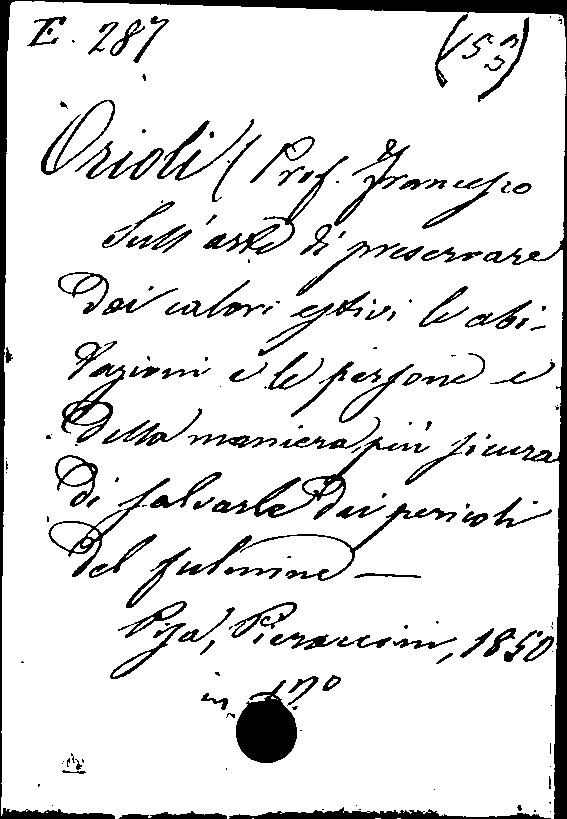 E. 287 (155)
Orioli (Prof. Francesco
Sull'arte di preservare
dai calori estivi le abi-
tazioni e le persone e
della maniera più sicura
di salvarle dai pericoli
del fulmine —
Pisa, Pieraccini, 1850
in